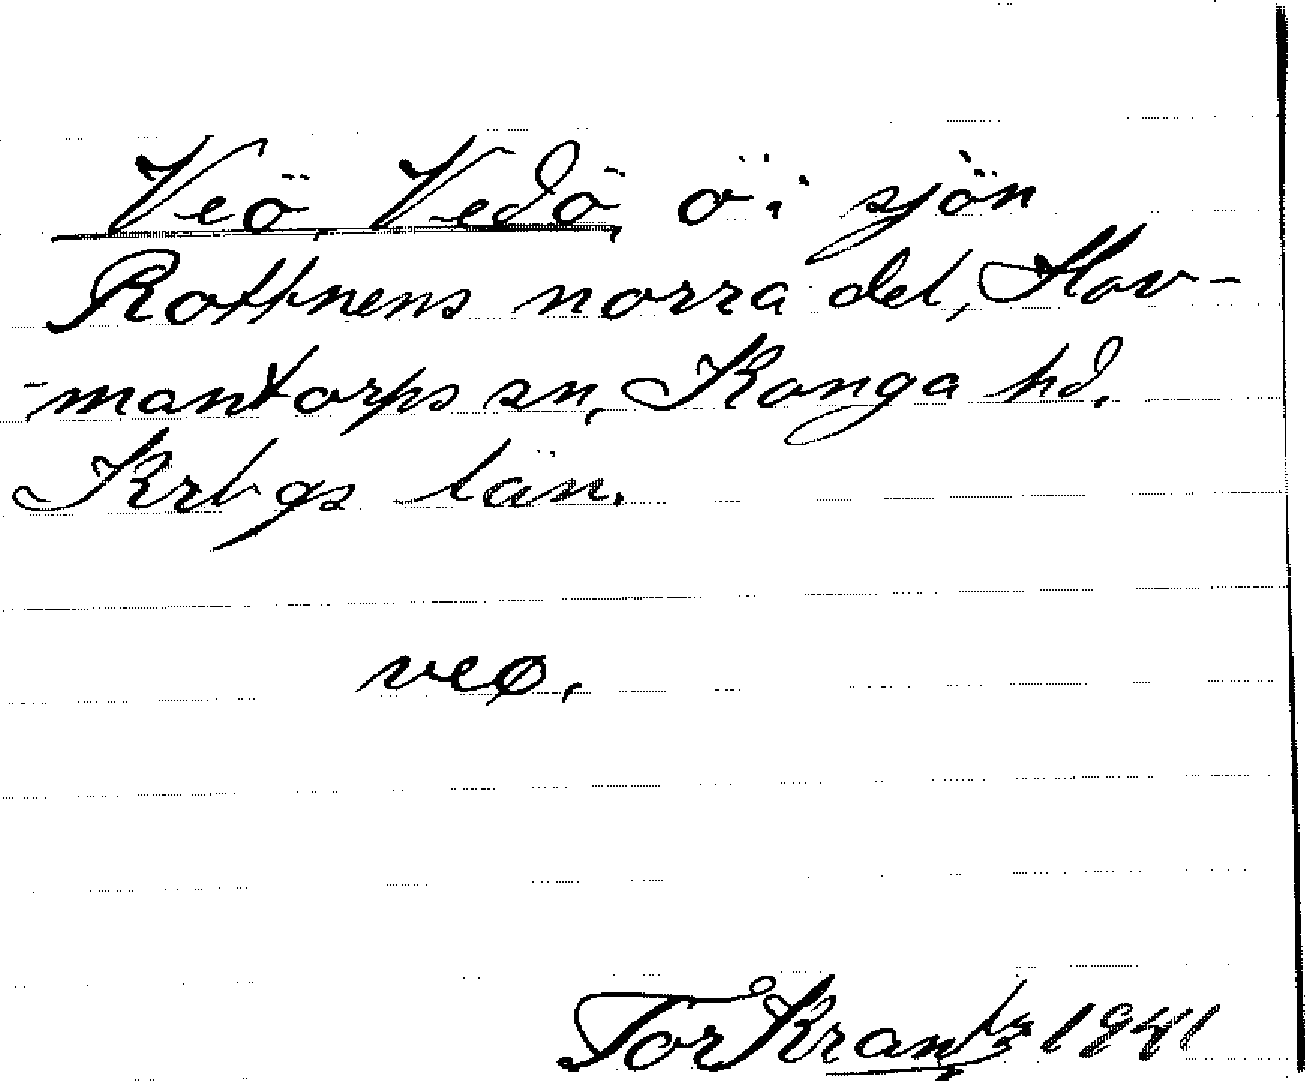 Veö, Vedö, ö i sjön
Rottnens norra del, Hov-
-mantorps sn, Konga hd.
Krbgs län.
veø.
Tor Krantz 1941